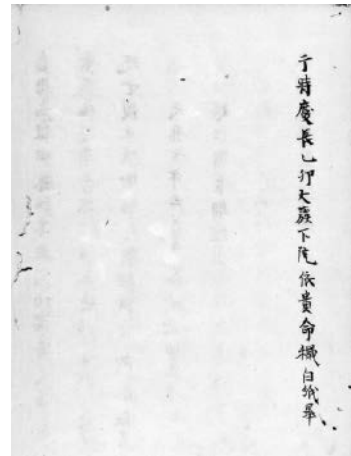 于時慶長乙卯大蔟下浣依貴命穢白紙畢